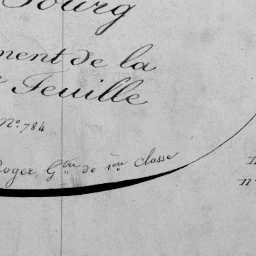 Bourg
ment de la
Feuille
N.º 784
Roger, G.tre de 1.ere Classe